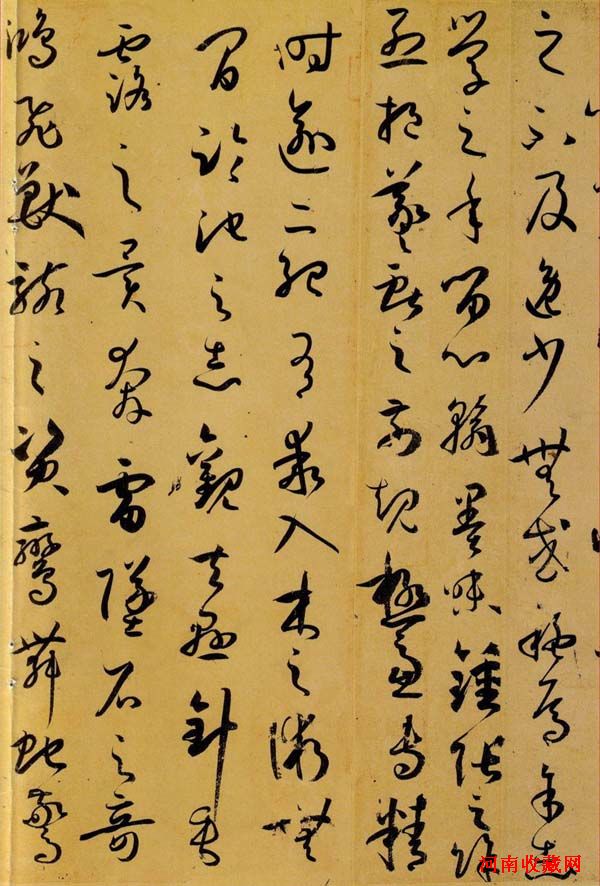 之不及逸少無或疑焉余志
學之年留心翰墨味鍾張之餘
烈挹羲獻之前規極慮專精
時逾二紀有乖入木之術無
間臨池之志觀夫懸針垂
露之異奔雷墜石之奇
鴻飛獸駭之資鸞舞蛇驚
河南收藏网